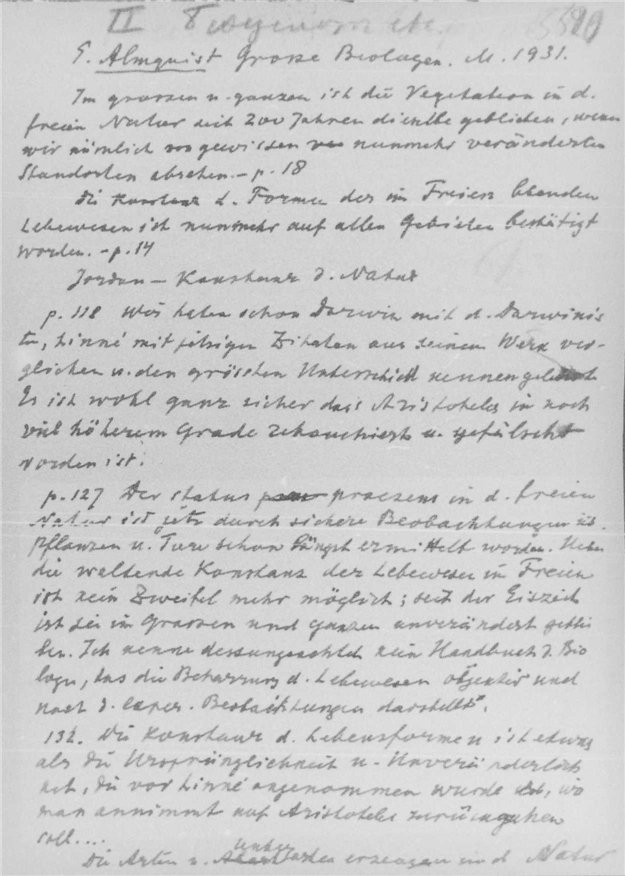 II
E. Almquist Grosse Biologen. M. 1931.
Im grossen u. ganzen ist die Vegetation in d.
freien Natur seit 200 Jahren dieselbe geblieben, wenn
wir nämlich von gewissen nunmehr veränderten
Standorten absehen. – p. 18
Die Konstanz d. Formen der im Freien lebenden
Lebewesen ist nunmehr auf allen Gebieten bestätigt
worden. – p. 14
Jordan – Konstanz d. Natur
p. 118 Wir haben schon Darwin mit d. Darwinis
ten, Linné mit Zitaten aus seinem Werk ver-
glichen u. den grössten Unterschied kennen gelernt
Es ist wohl ganz sicher dass Aristoteles in noch
viel höherem Grade u. gefälscht
worden ist.
p. 127 Der status praesens in d. freien
Natur ist jetz durch sichere Beobachtungen üb.
Pflanzen u. Tiere schon längst ermittelt worden. Ueber
die waltende Konstanz der Lebewesen im Freien
ist kein Zweifel mehr möglich; seit der Eiszeit
ist sie im Grossen und ganzen unverändert geblie
ben. Ich kenne dessungeachtet kein Handbuch d. Bio
logie, das die Beharrung d. Lebewesen objektiv und
nach d. exper. Beobachtungen darstellt".
132. Die Konstanz d. Lebensformen ist etwas
als die Ursprünglichkeit u. Unveränderlich
keit, die vor Linné angenommen wurde, wo
man annimmt auf Aristoteles zurückgehen
soll....
Die Arten u. Unterarten erzeugen in d Natur